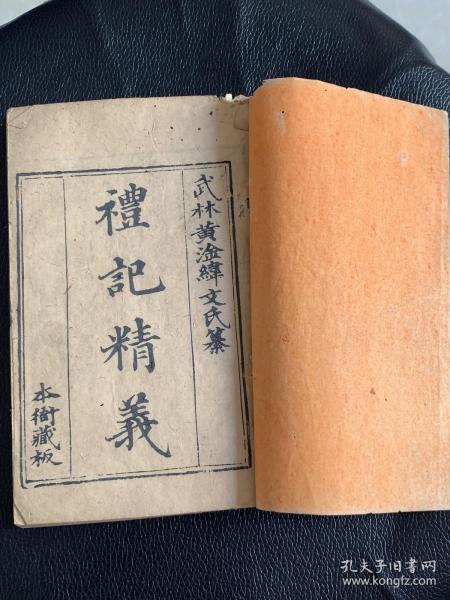 武林黄淦緯文氏纂
禮記精義
本衙藏板
孔夫子旧书网
www.kongfz.com